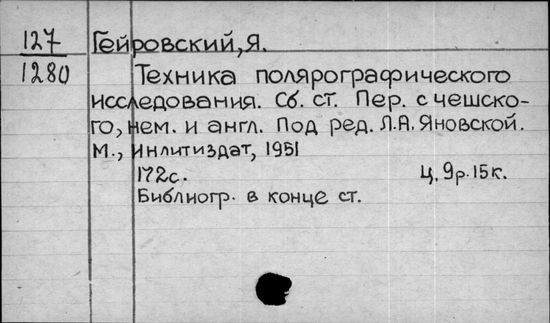 127 Гейровский, Я.
1280 Техника полярографического
исследования. Сб. ст. Пер. с чешско-
го, нем. и англ. Под ред. Л.А. Яновской.
М., Инлитиздат, 1951
172с. Ц. 9р. 15к.
Библиогр. в конце ст.